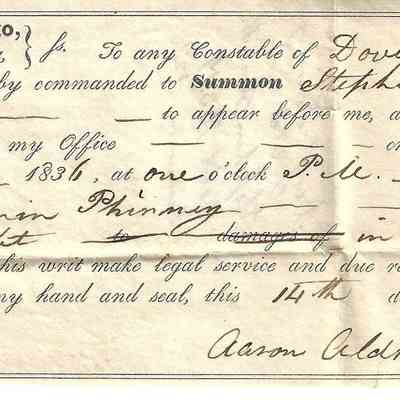 ss. To any Constable of Dov
by commanded to Summon Steph
— — to appear before me, a
my Office — —
1836, at one o'clock P.M.
in Phinney — —
to damages of in
his writ make legal service and due r
ny hand and seal, this 14th d
Aaron Ald